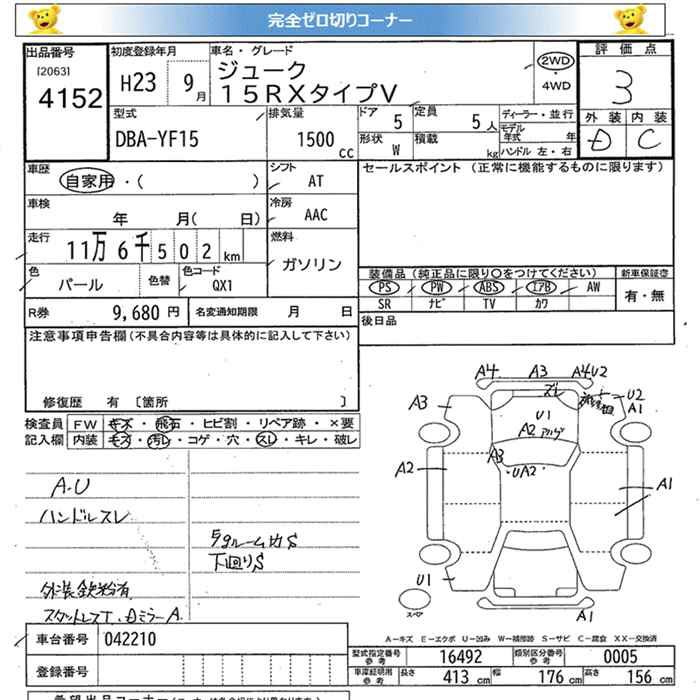 完全ゼロ切りコーナー
出品番号 [2063] 4152
初度登録年月 H23 9月
車名・グレード ジューク
15RXタイプV
2WD・4WD
評価点 3
外装 内装
D C
型式 DBA-YF15
排気量 1500cc
ドア 5
定員 5人
形状 W
積載 kg
ディーラー・並行
モデル年式 年
ハンドル 左・右
車歴 自家用・( )
シフト AT
セールスポイント (正常に機能するものに限ります)
車検 年 月( 日)
冷房 AAC
走行 11万6千502km
燃料 ガソリン
色 パール
色替
色コード QX1
装備品(純正品に限り○をつけてください)
新車保証書
PS PW ABS エアB AW
有・無
SR ナビ TV カワ
R券 9,680円
名変通知期限 月 日
後日品
注意事項申告欄(不具合内容等は具体的に記入して下さい)
修復歴 有 [箇所 ]
検査員記入欄
FW キズ・飛石・ヒビ割・リペア跡・×要
内装 キズ・汚レ・コゲ・穴・スレ・キレ・破レ
A・U
ハンドルスレ
下回りS
A4 A3 A4U2
A3 ズレ U2
A1
U1
A2
A3
UA2
A2
A1
U1
スペア
A1
A-キズ E-エクボ U-凹み W-補修跡 S-サビ C-腐食 XX-交換済
車台番号 042210
登録番号
型式指定番号 参考 16492
類別区分番号 参考 0005
車庫証明用 参考 長さ 413cm 幅 176cm 高さ 156cm